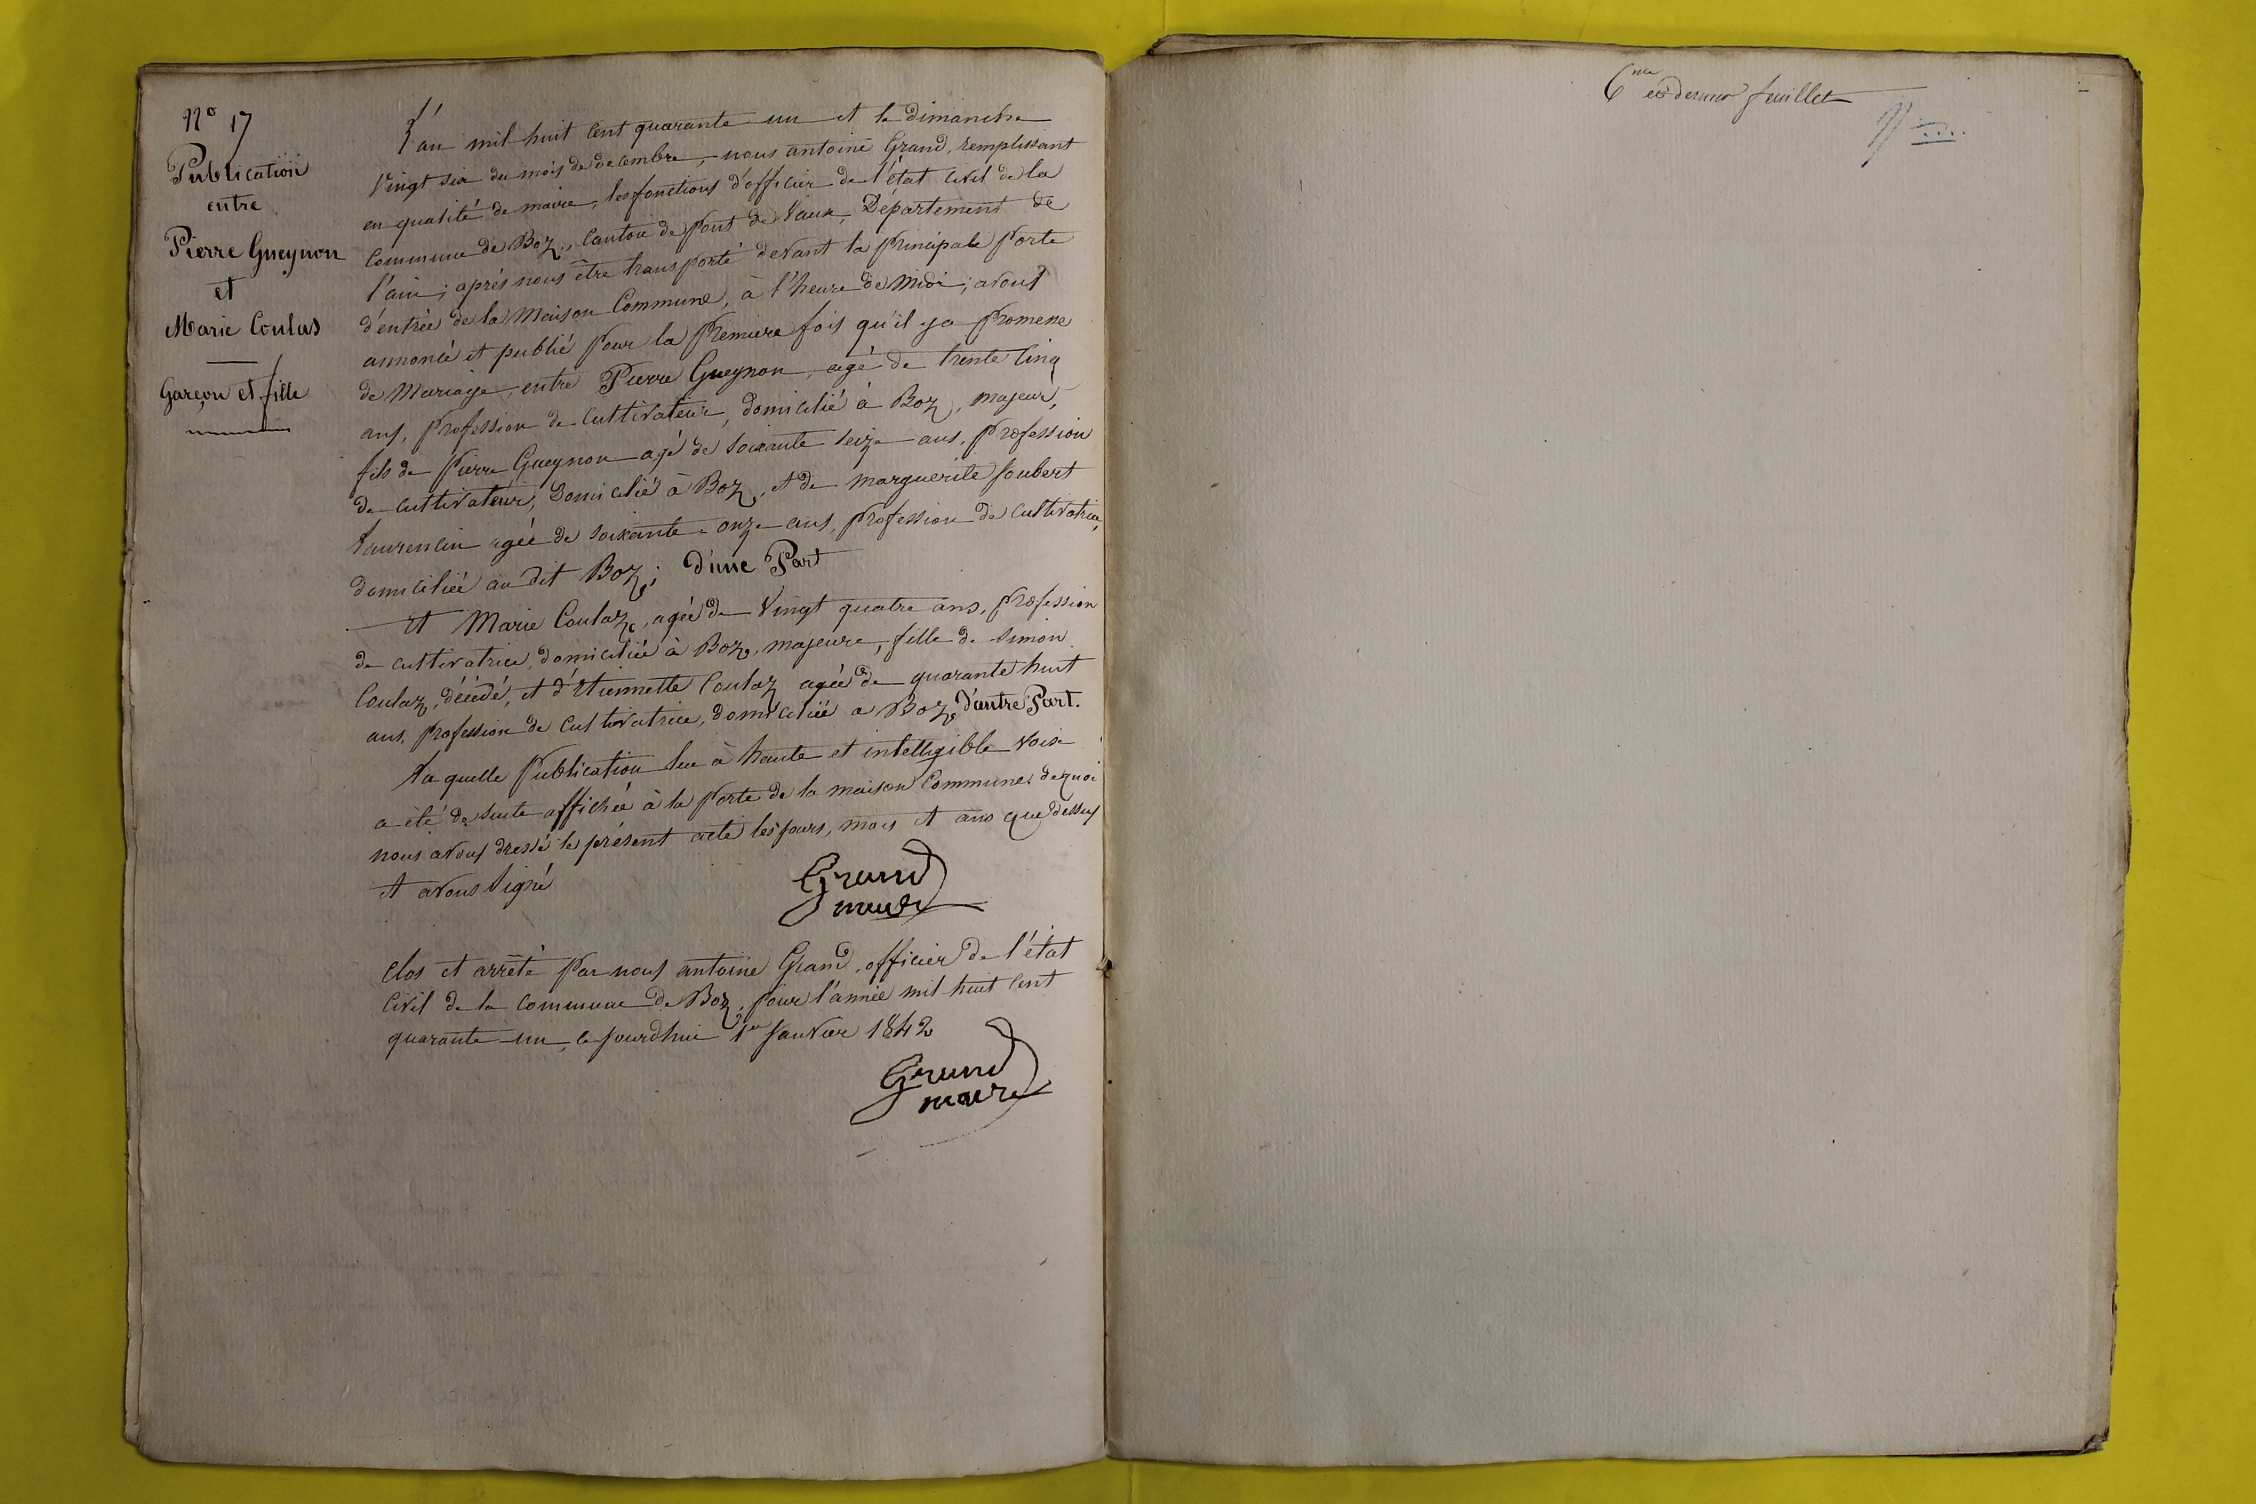 N° 17
Publication
entre
Pierre Gueynon
et
Marie Coulas
Garçon et fille
L'an mil huit cent quarante un et le dimanche
vingt six du mois de decembre, nous antoine Grand, remplissant
en qualité de maire, les fonctions d'officier de l'état civil de la
commune de Boz, canton de pont de Vaux, Département de
l'ain; après nous être transporté devant la principale porte
d'entrée de la Maison Commune, à l'heure de Midi; avons
annoncé et publié pour la premiere fois qu'il y a promesse
de Mariage, entre Pierre Gueynon, agé de trente cinq
ans, profession de cultivateur, domicilié à Boz, majeur,
fils de pierre Gueynon agé de soixante seize ans, profession
de cultivateur, domicilié à Boz, et de marguerite Joubert
Laurencin agée de soixante-onze ans, profession de cultivatrice,
domiciliée au dit Boz; d'une Part
et Marie Coulaz, agée de vingt quatre ans, profession
de cultivatrice, domiciliée à Boz, majeure, fille de simon
Coulaz, décédé, et d'Etiennette Coulaz agée de quarante huit
ans, profession de cultivatrice, domiciliée a Boz, d'autre Part.
La quelle publication lue à haute et intelligible voix
a été de suite affichée à la porte de la maison Commune. de quoi
nous avons dressé le présent acte les jours, mois et ans que dessus
et avons signé
Grand
maire
clos et arrêté par nous antoine Grand, officier de l'état
civil de la commune de Boz, pour l'année mil huit cent
quarante-un, ce jourdhui 1er Janvier 1842
Grand
maire
6me et dernier feuillet